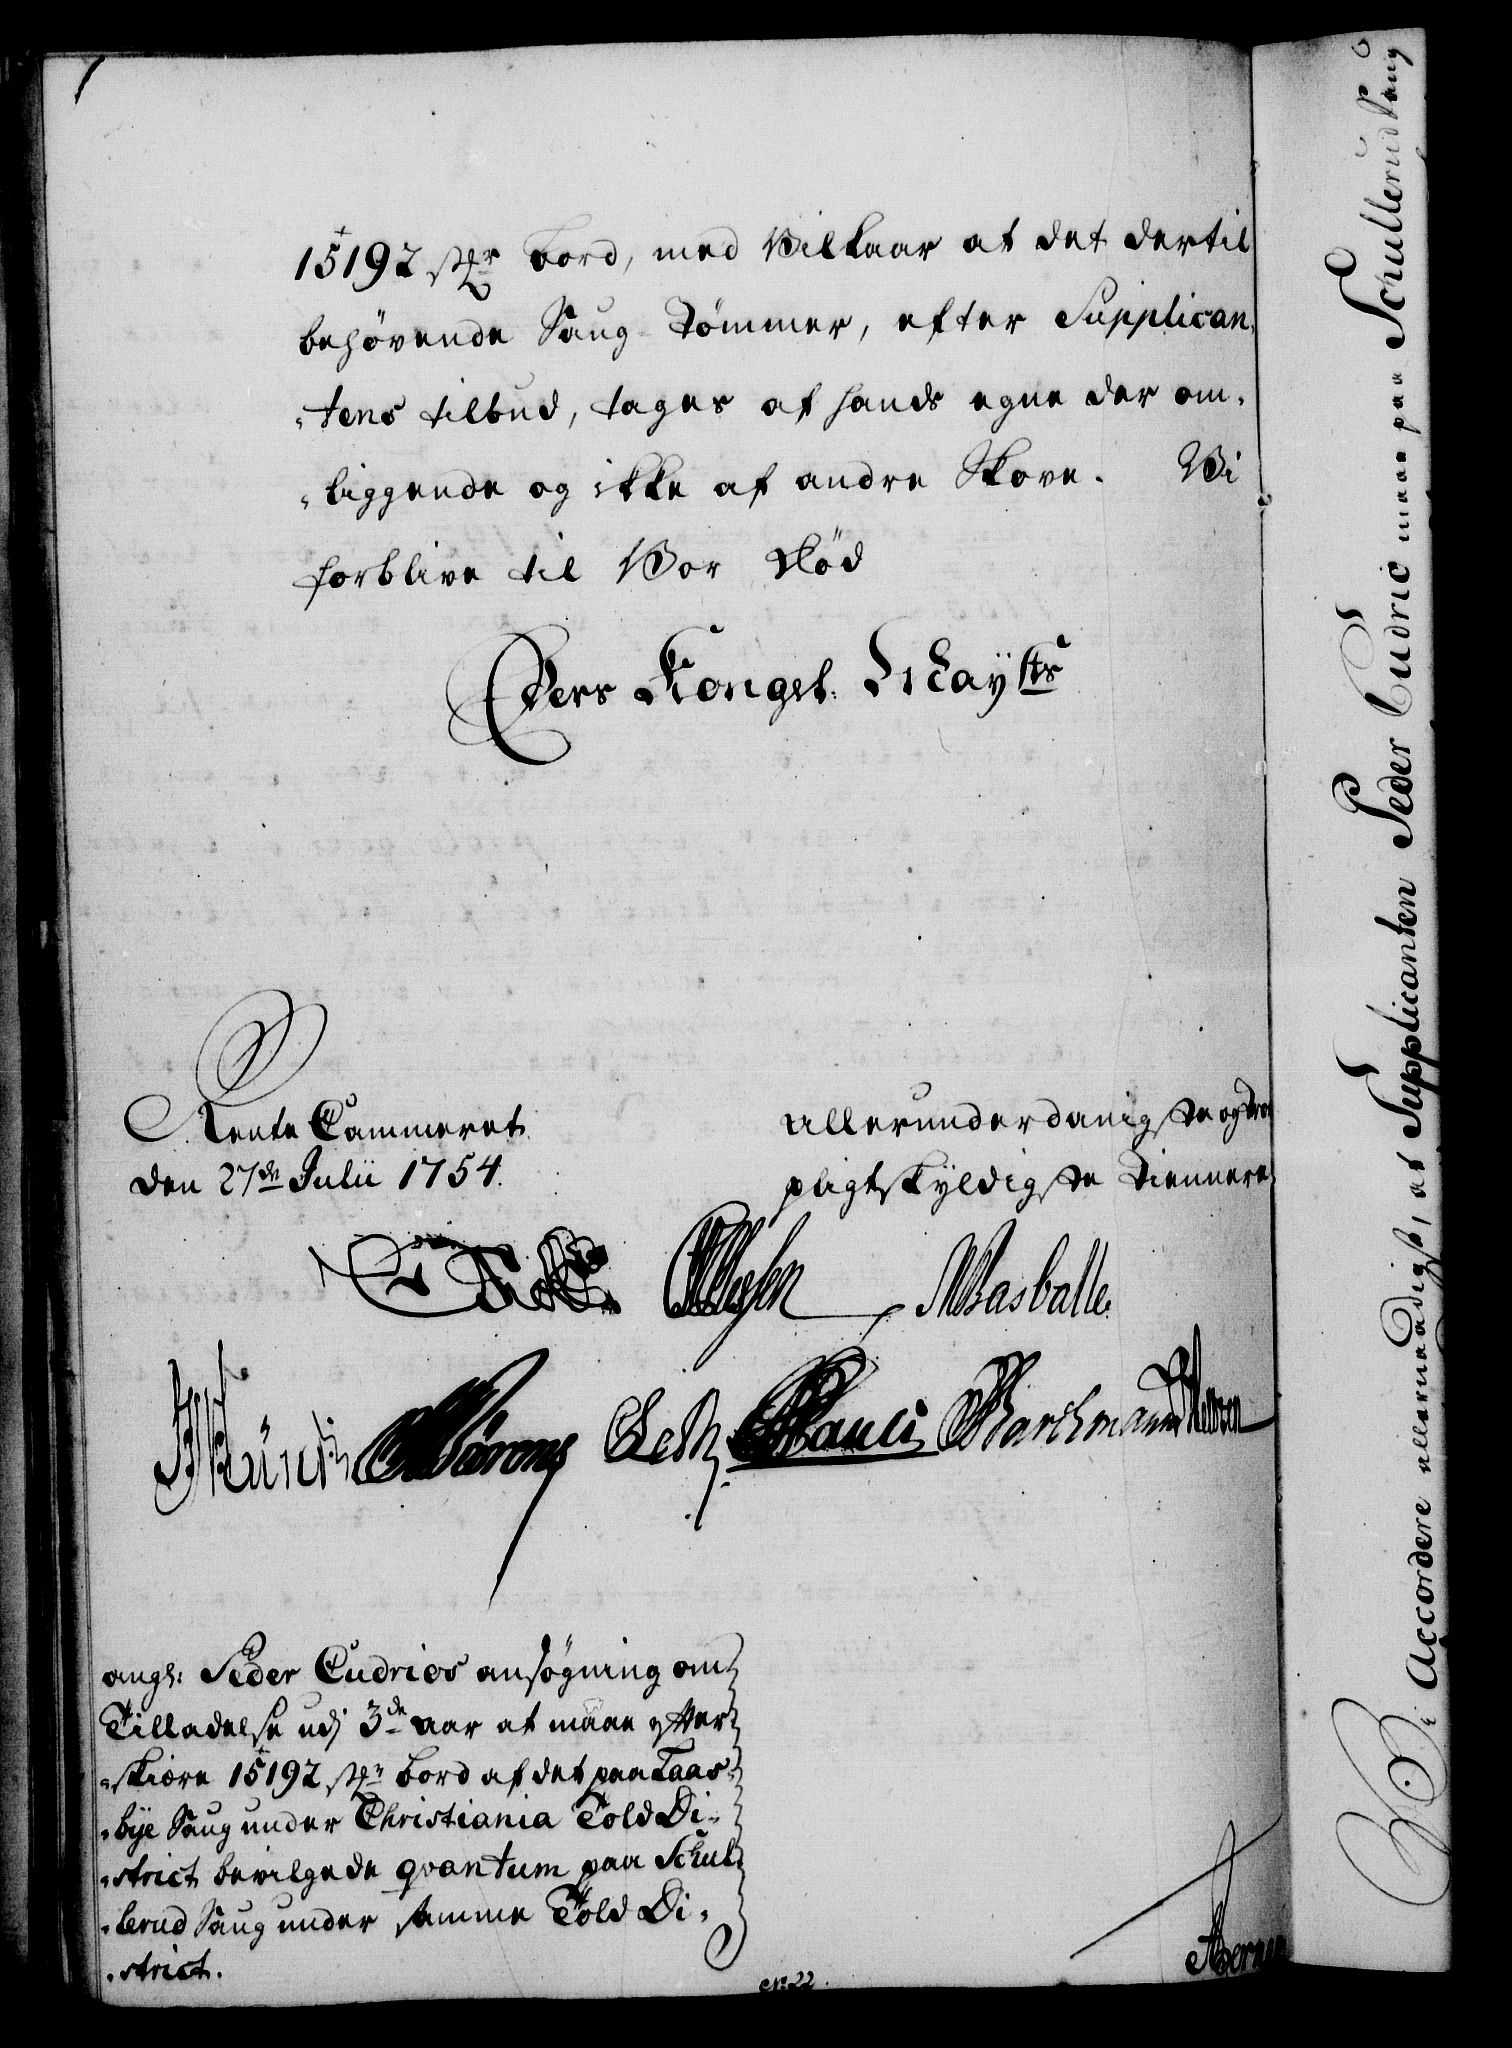 15192 st&r Bord, med Vilkaar at det dertil
behövende Saug-Tömmer, efter Supplican-
-tens tilbud, tages af hands egne der om-
-liggende og ikke af andre Skove. Vi
forblive til Vor Död
Eders Kongel. Maysts
Rente Cammeret
den 27de Julii 1754.
allerunderdanigste og
pligtskyldigste Tiennere
Wasballe
Pauli
angl: Peder Cudrios ansögning om
Tilladelse udj 3de aar at maae
-skiære 15192 st&r Bord af det paa Taas-
-bye Saug under Christiania Told Di-
-strict bevilgede qvantum paa Schul-
-lerud Saug under samme Told Di-
-strict.
No: 22.
Vi Accordere allernaadigst, at Supplicanten Peder Cudrio maae paa Schullerud Saug